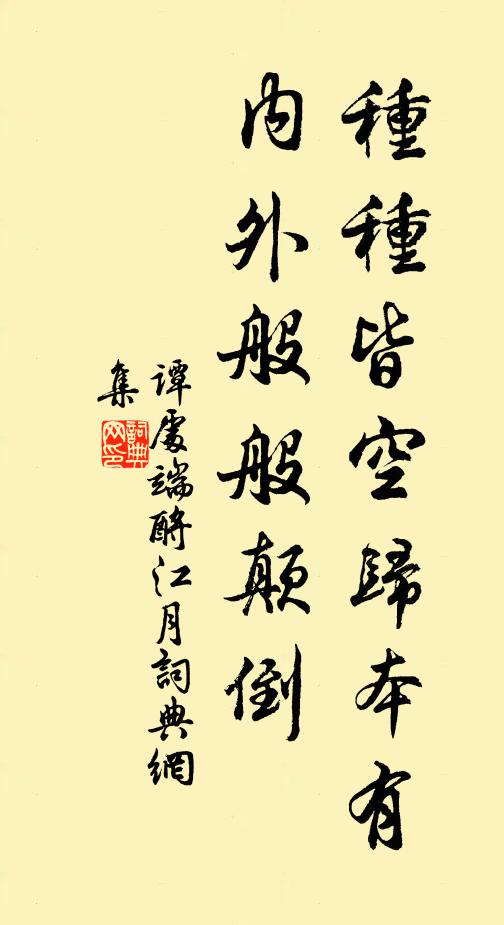 種種皆空歸本有
內外般般顛倒
譚處端酹江月詞典網
集
詞典網印